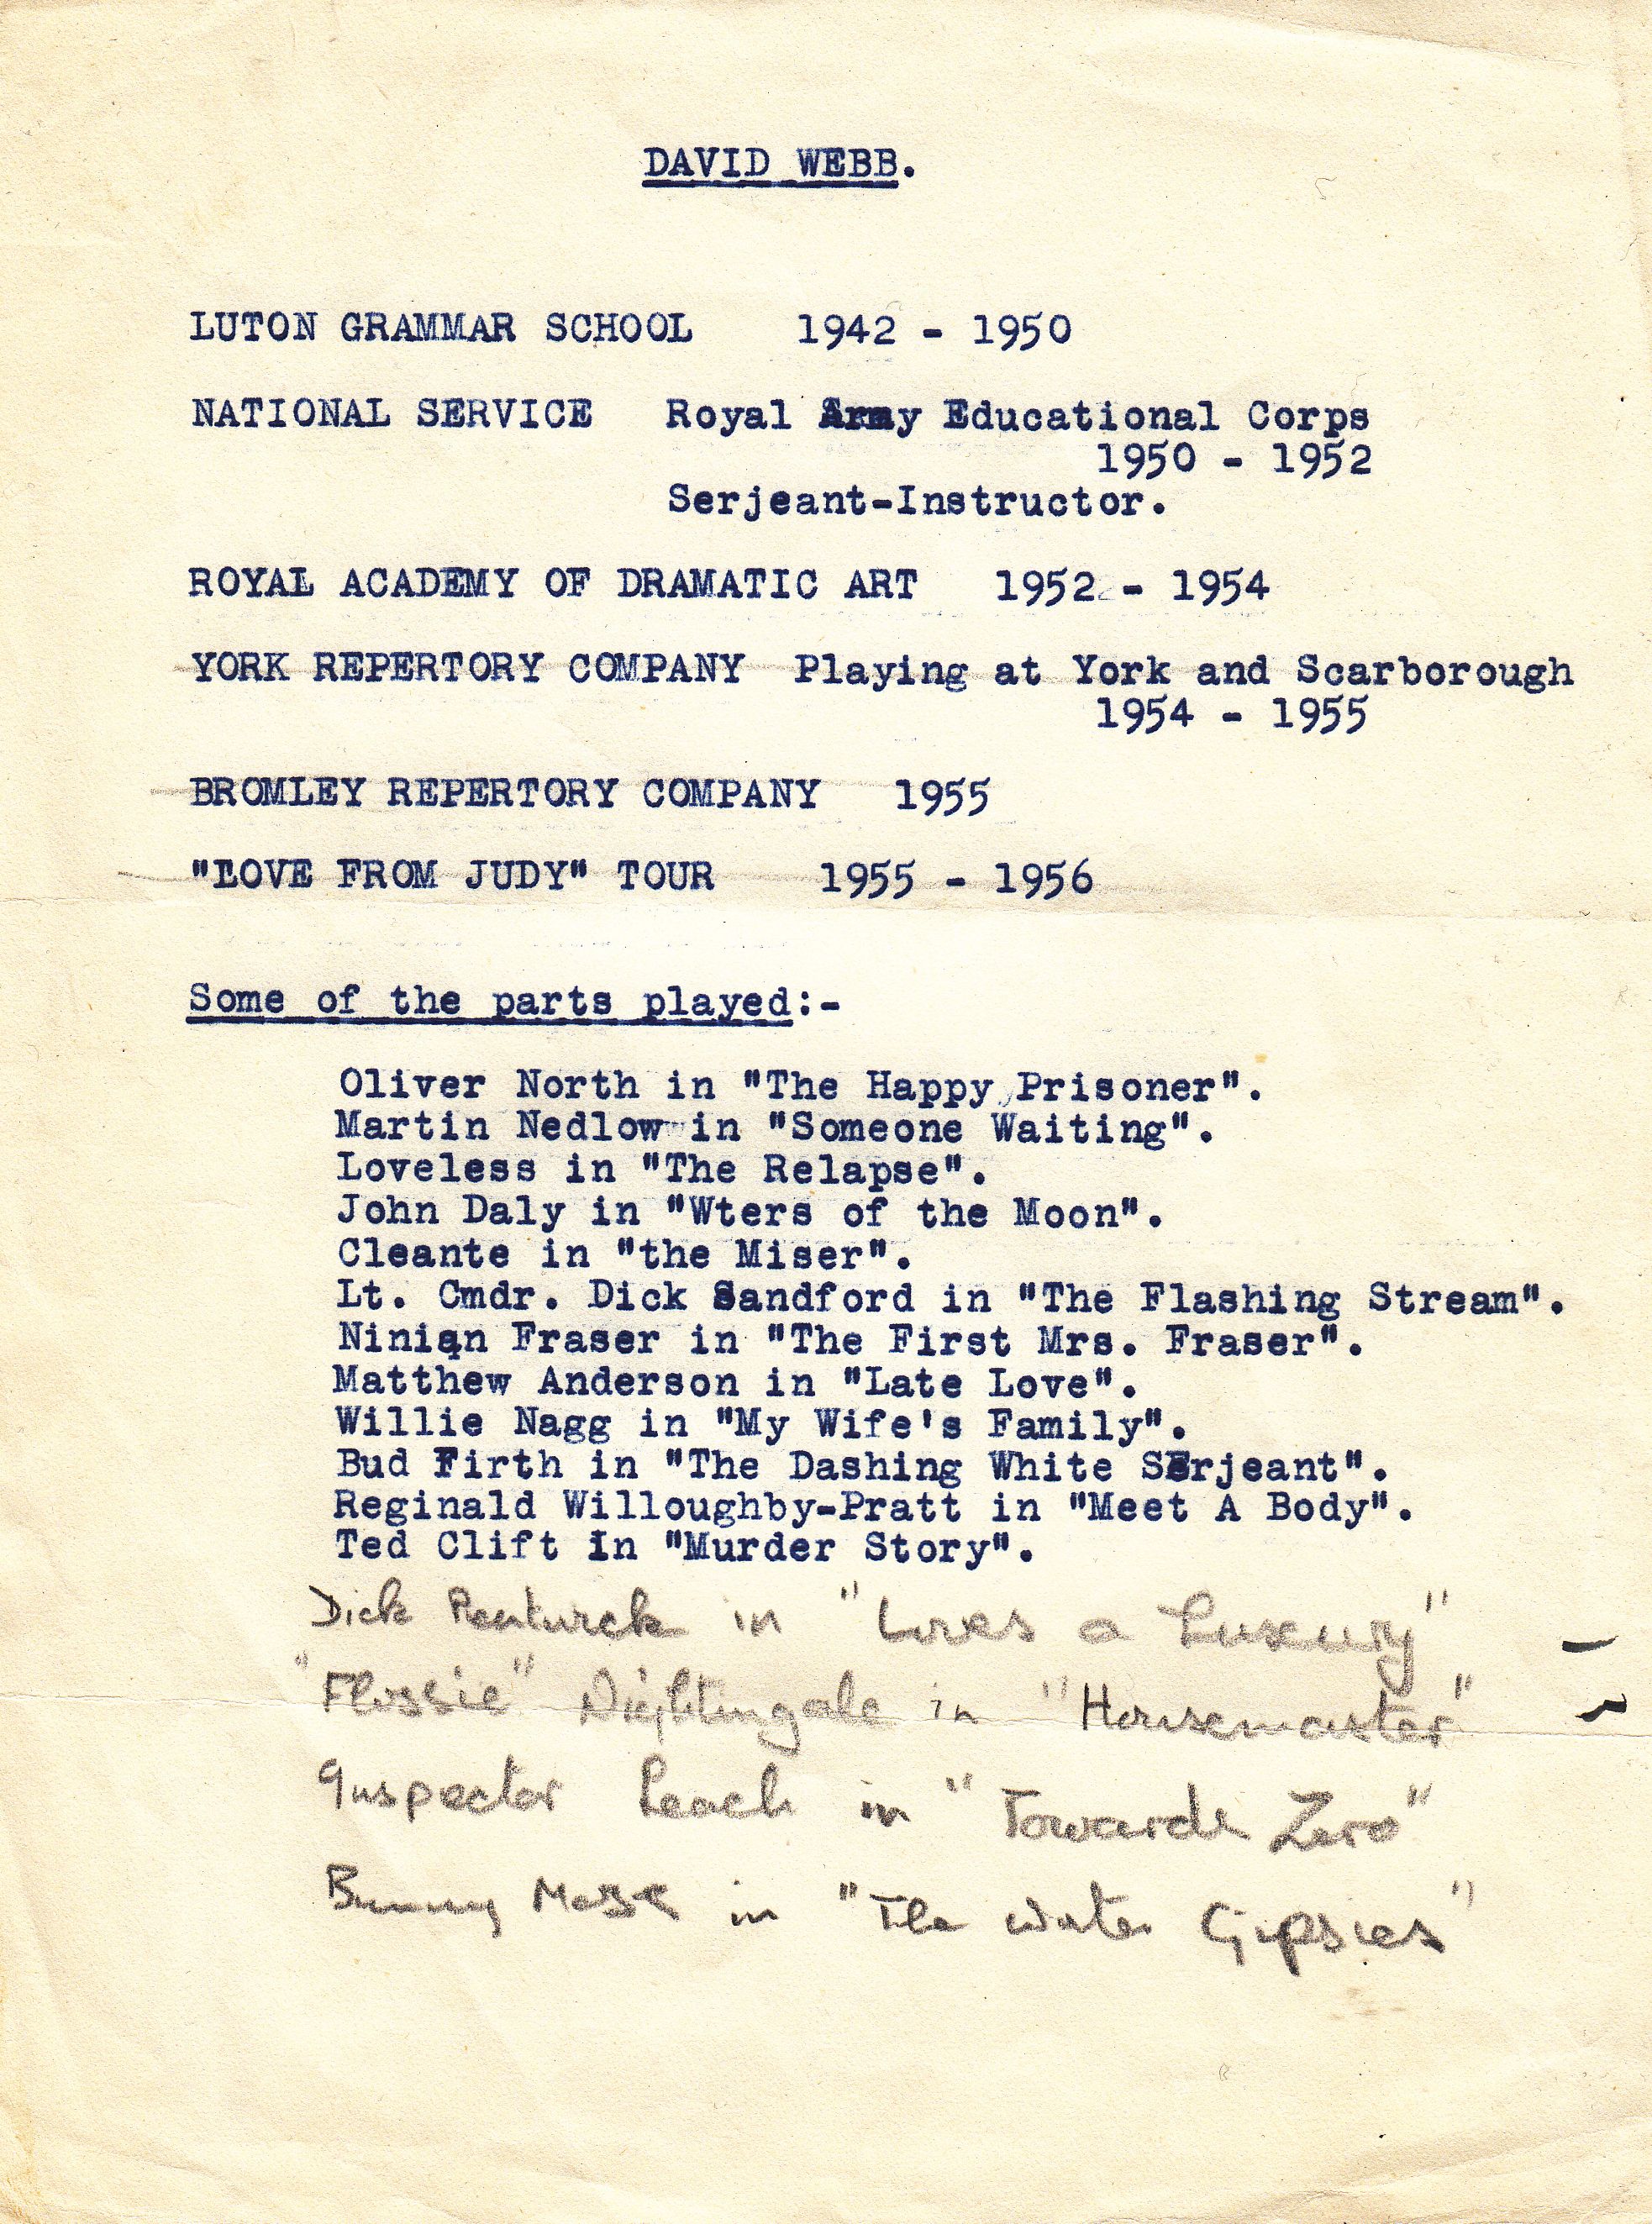 DAVID WEBB.
LUTON GRAMMAR SCHOOL 1942 - 1950
NATIONAL SERVICE Royal Army Educational Corps
1950 - 1952
Serjeant-Instructor.
ROYAL ACADEMY OF DRAMATIC ART 1952 - 1954
YORK REPERTORY COMPANY Playing at York and Scarborough
1954 - 1955
BROMLEY REPERTORY COMPANY 1955
"LOVE FROM JUDY" TOUR 1955 - 1956
Some of the parts played:-
Oliver North in "The Happy Prisoner".
Martin Nedlow in "Someone Waiting".
Loveless in "The Relapse".
John Daly in "Wters of the Moon".
Cleante in "the Miser".
Lt. Cmdr. Dick Sandford in "The Flashing Stream".
Ninian Fraser in "The First Mrs. Fraser".
Matthew Anderson in "Late Love".
Willie Nagg in "My Wife's Family".
Bud Firth in "The Dashing White Serjeant".
Reginald Willoughby-Pratt in "Meet A Body".
Ted Clift in "Murder Story".
Dick in "Love's a Luxury"
"Flossie" Nightingale in "Housemaster"
Inspector Leach in "Towards Zero"
Bunny in "The Water Gipsies"